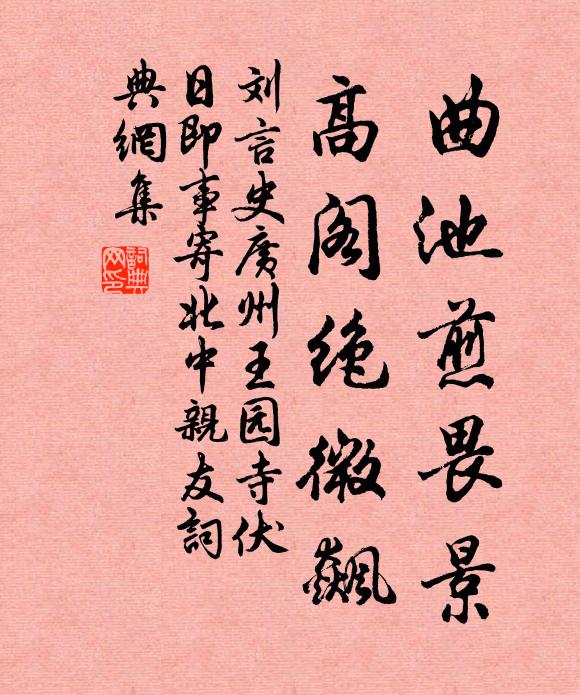 曲池煎畏景
高阁绝微飙
刘言史廣州王园寺伏
日即事寄北中親友詞
典網集
詞典网印